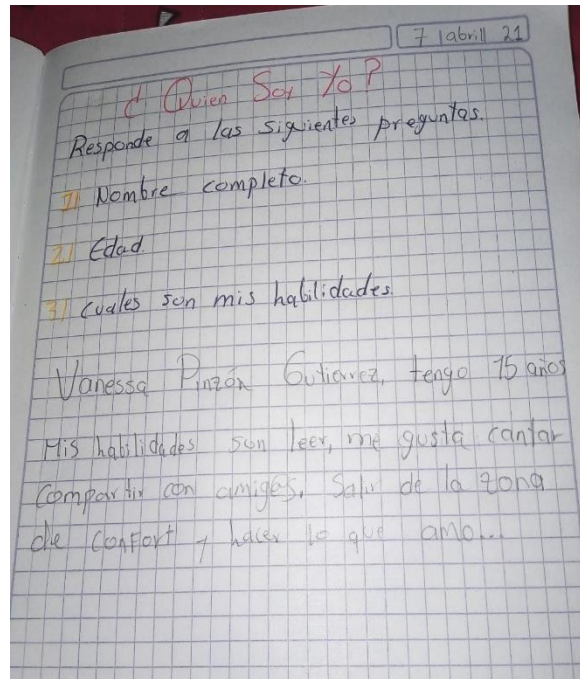 7 /abril/ 21
¿Quien Soy Yo?
Responde a las siguientes preguntas.
1) Nombre completo.
2) Edad.
3) cuales son mis habilidades.
Vanessa Pinzón Gutierrez, tengo 15 años
Mis habilidades son leer, me gusta cantar
Compartir con amigos. Salir de la zona
de confort y hacer lo que amo...